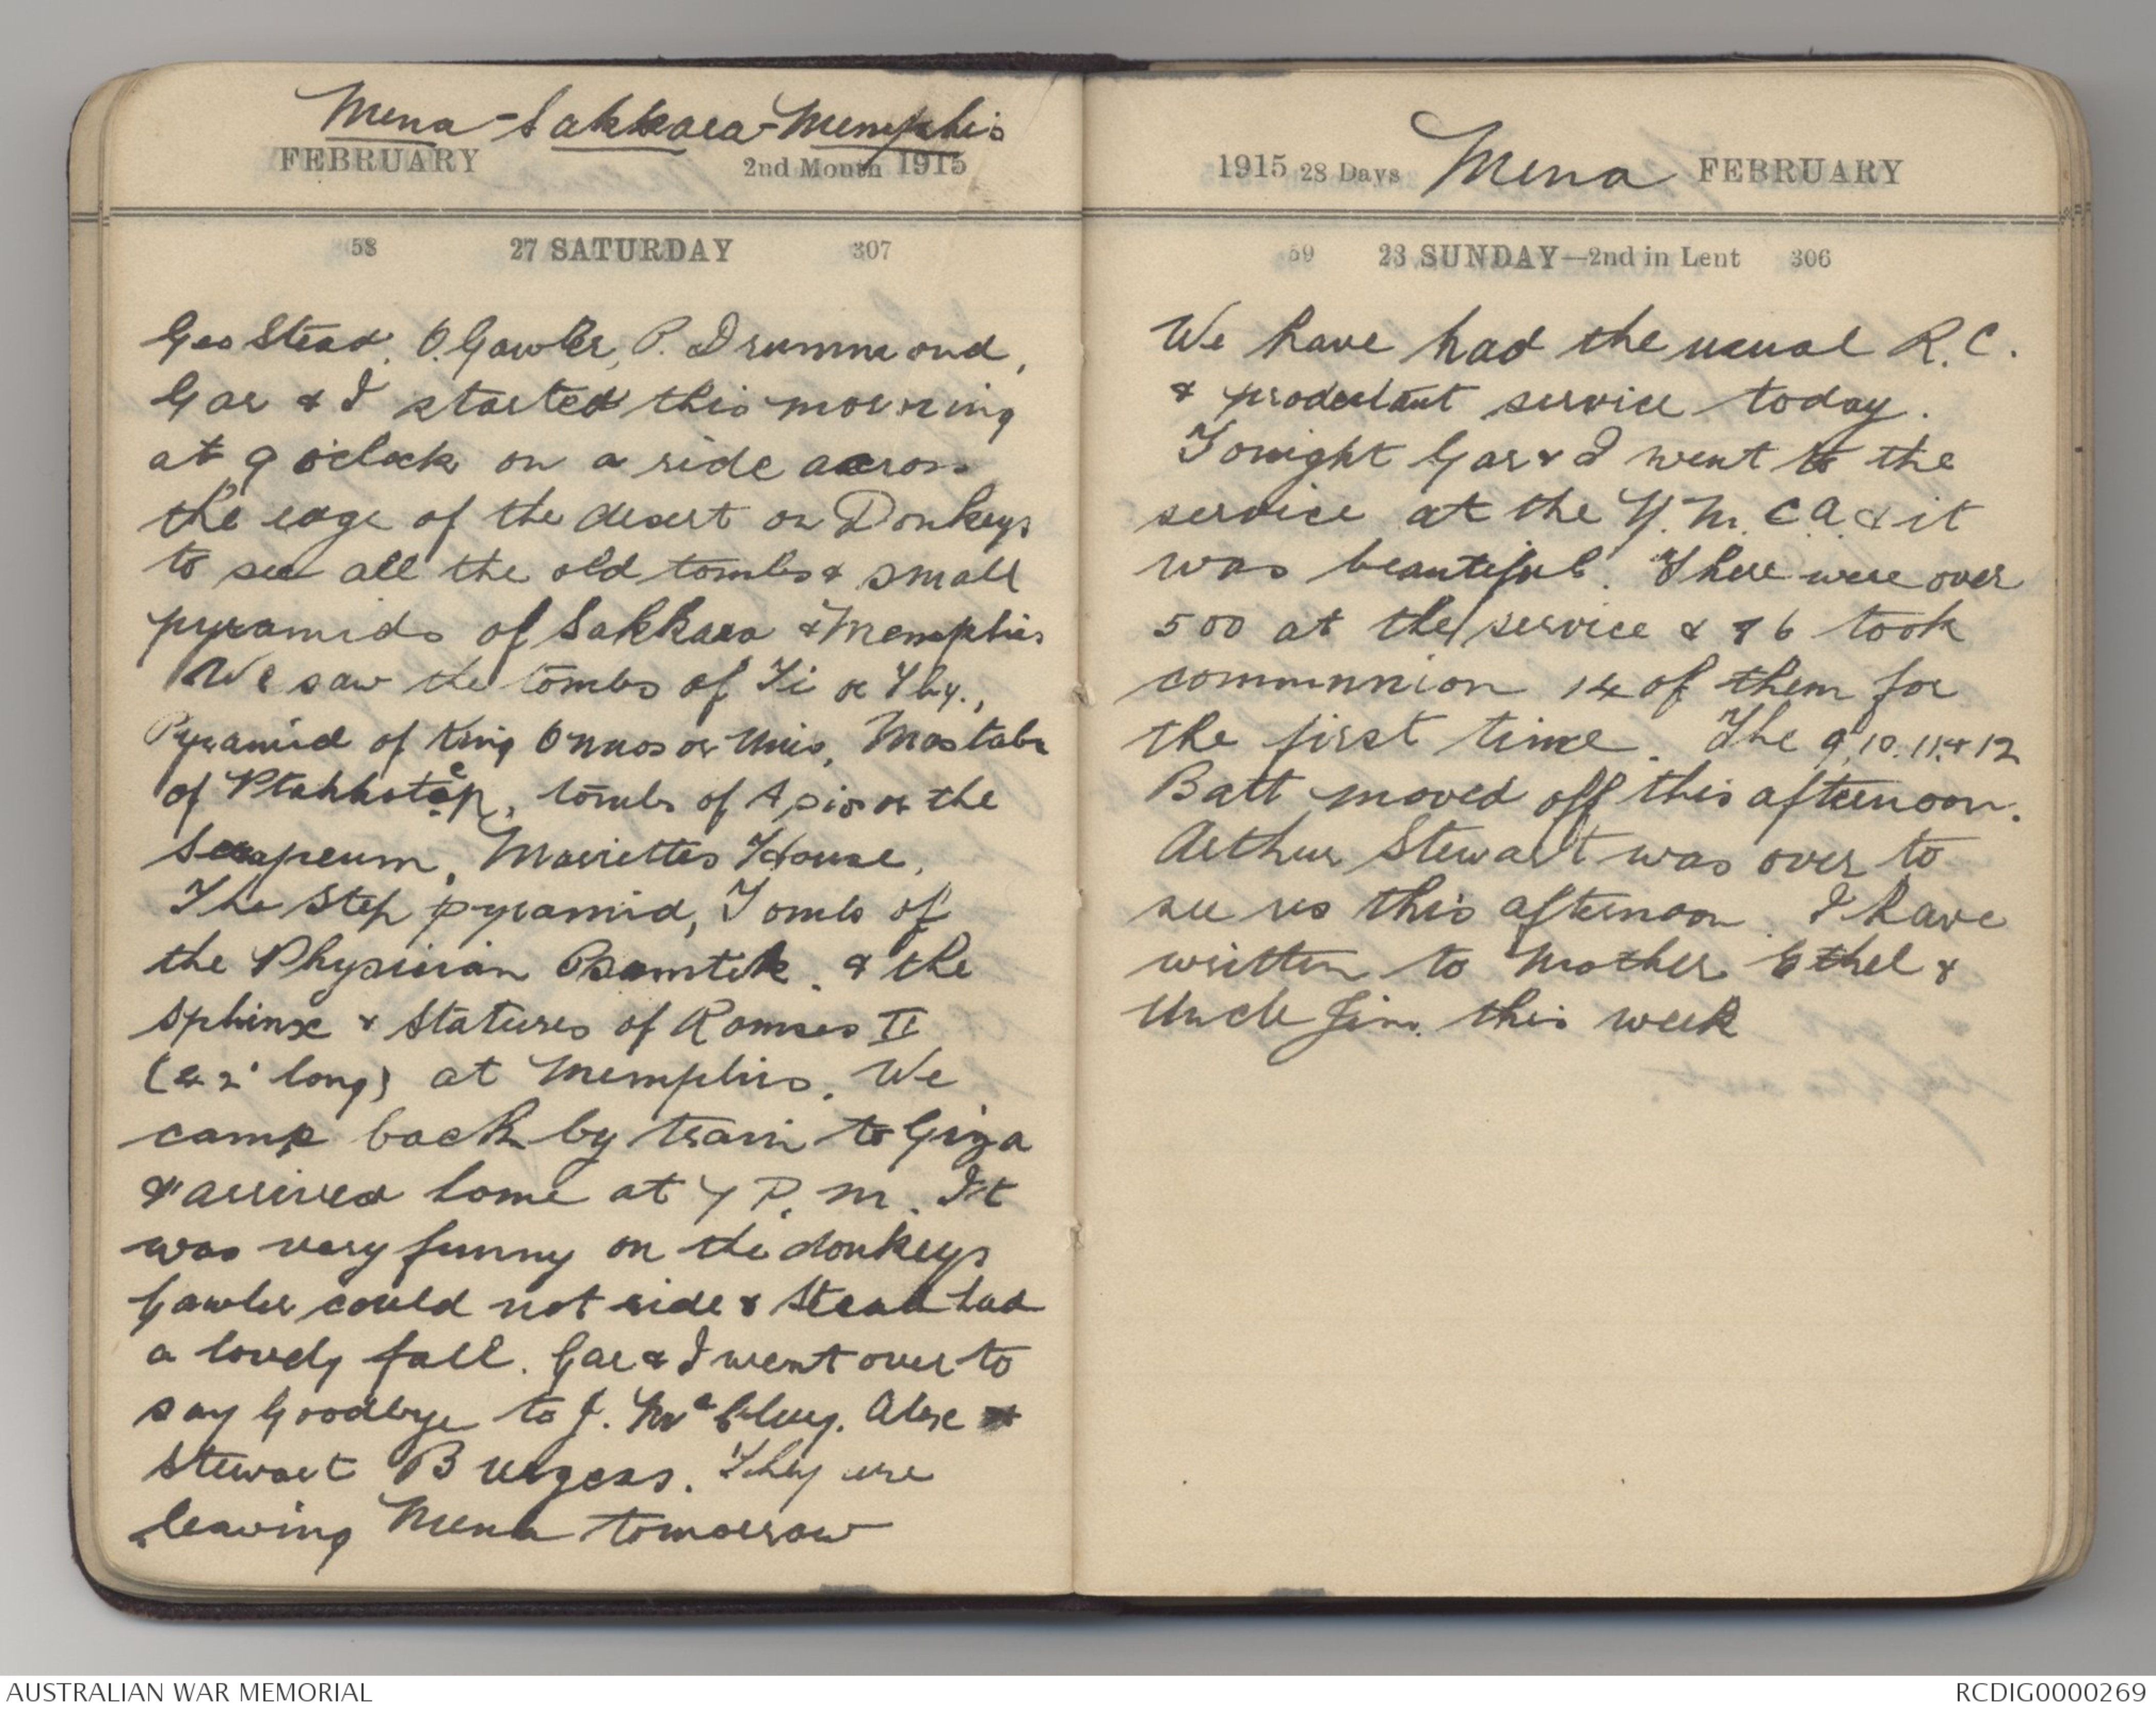 Mena-Sakkara-Memphis
FEBRUARY 2nd Month 1915
58 27 SATURDAY 307
Geo Stead, O. Gawler, P. Drummond,
Gar & I started this morning
at 9 o'clock on a ride across
the edge of the desert on Donkeys
to see all the old tombs & small
pyramids of Sakkara & Memphis
We saw the tombs of Ti or Thy.,
Pyramid of King Onnos or Unis, Mastaba
of Ptahhotep, tombs of Apis or the
Serapeum, Mariettes House,
The Step pyramid, Tomb of
the Physician Psamtik. & the
Sphinx & Statures of Ramses II
(42' long) at Memphis. We
came back by train to Giza
& arrived home at 7 P.m. It
was very funny on the donkeys
Gawler could not ride & Stead had
a lovely fall. Gar & I went over to
say Goodbye to J. Mc Clug. Alex &
Stewart Burgess. They are
leaving Mena tomorrow
1915 28 Days Mena FEBRUARY
59 28 SUNDAY—2nd in Lent 306
We have had the usual R.C.
& prodestant service today.
Tonight Gar & I went to the
service at the Y.M.C.A. & it
was beautiful. There were over
500 at the service & 76 took
communnion 14 of them for
the first time. The 9,10.11.& 12
Batt moved off this afternoon.
Arthur Stewart was over to
see us this afternoon. I have
written to Mother Ethel &
Uncle Jim. this week
AUSTRALIAN WAR MEMORIAL
RCDIG0000269